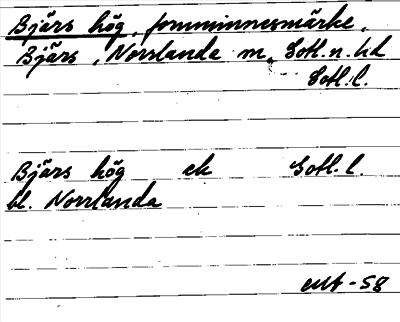 Bjärs hög, fornminnesmärke,
Bjärs, Norrlanda sn, Gotl. n. hd
Gotl. l.
Bjärs hög ek Gotl. l.
bl. Norrlanda
-58